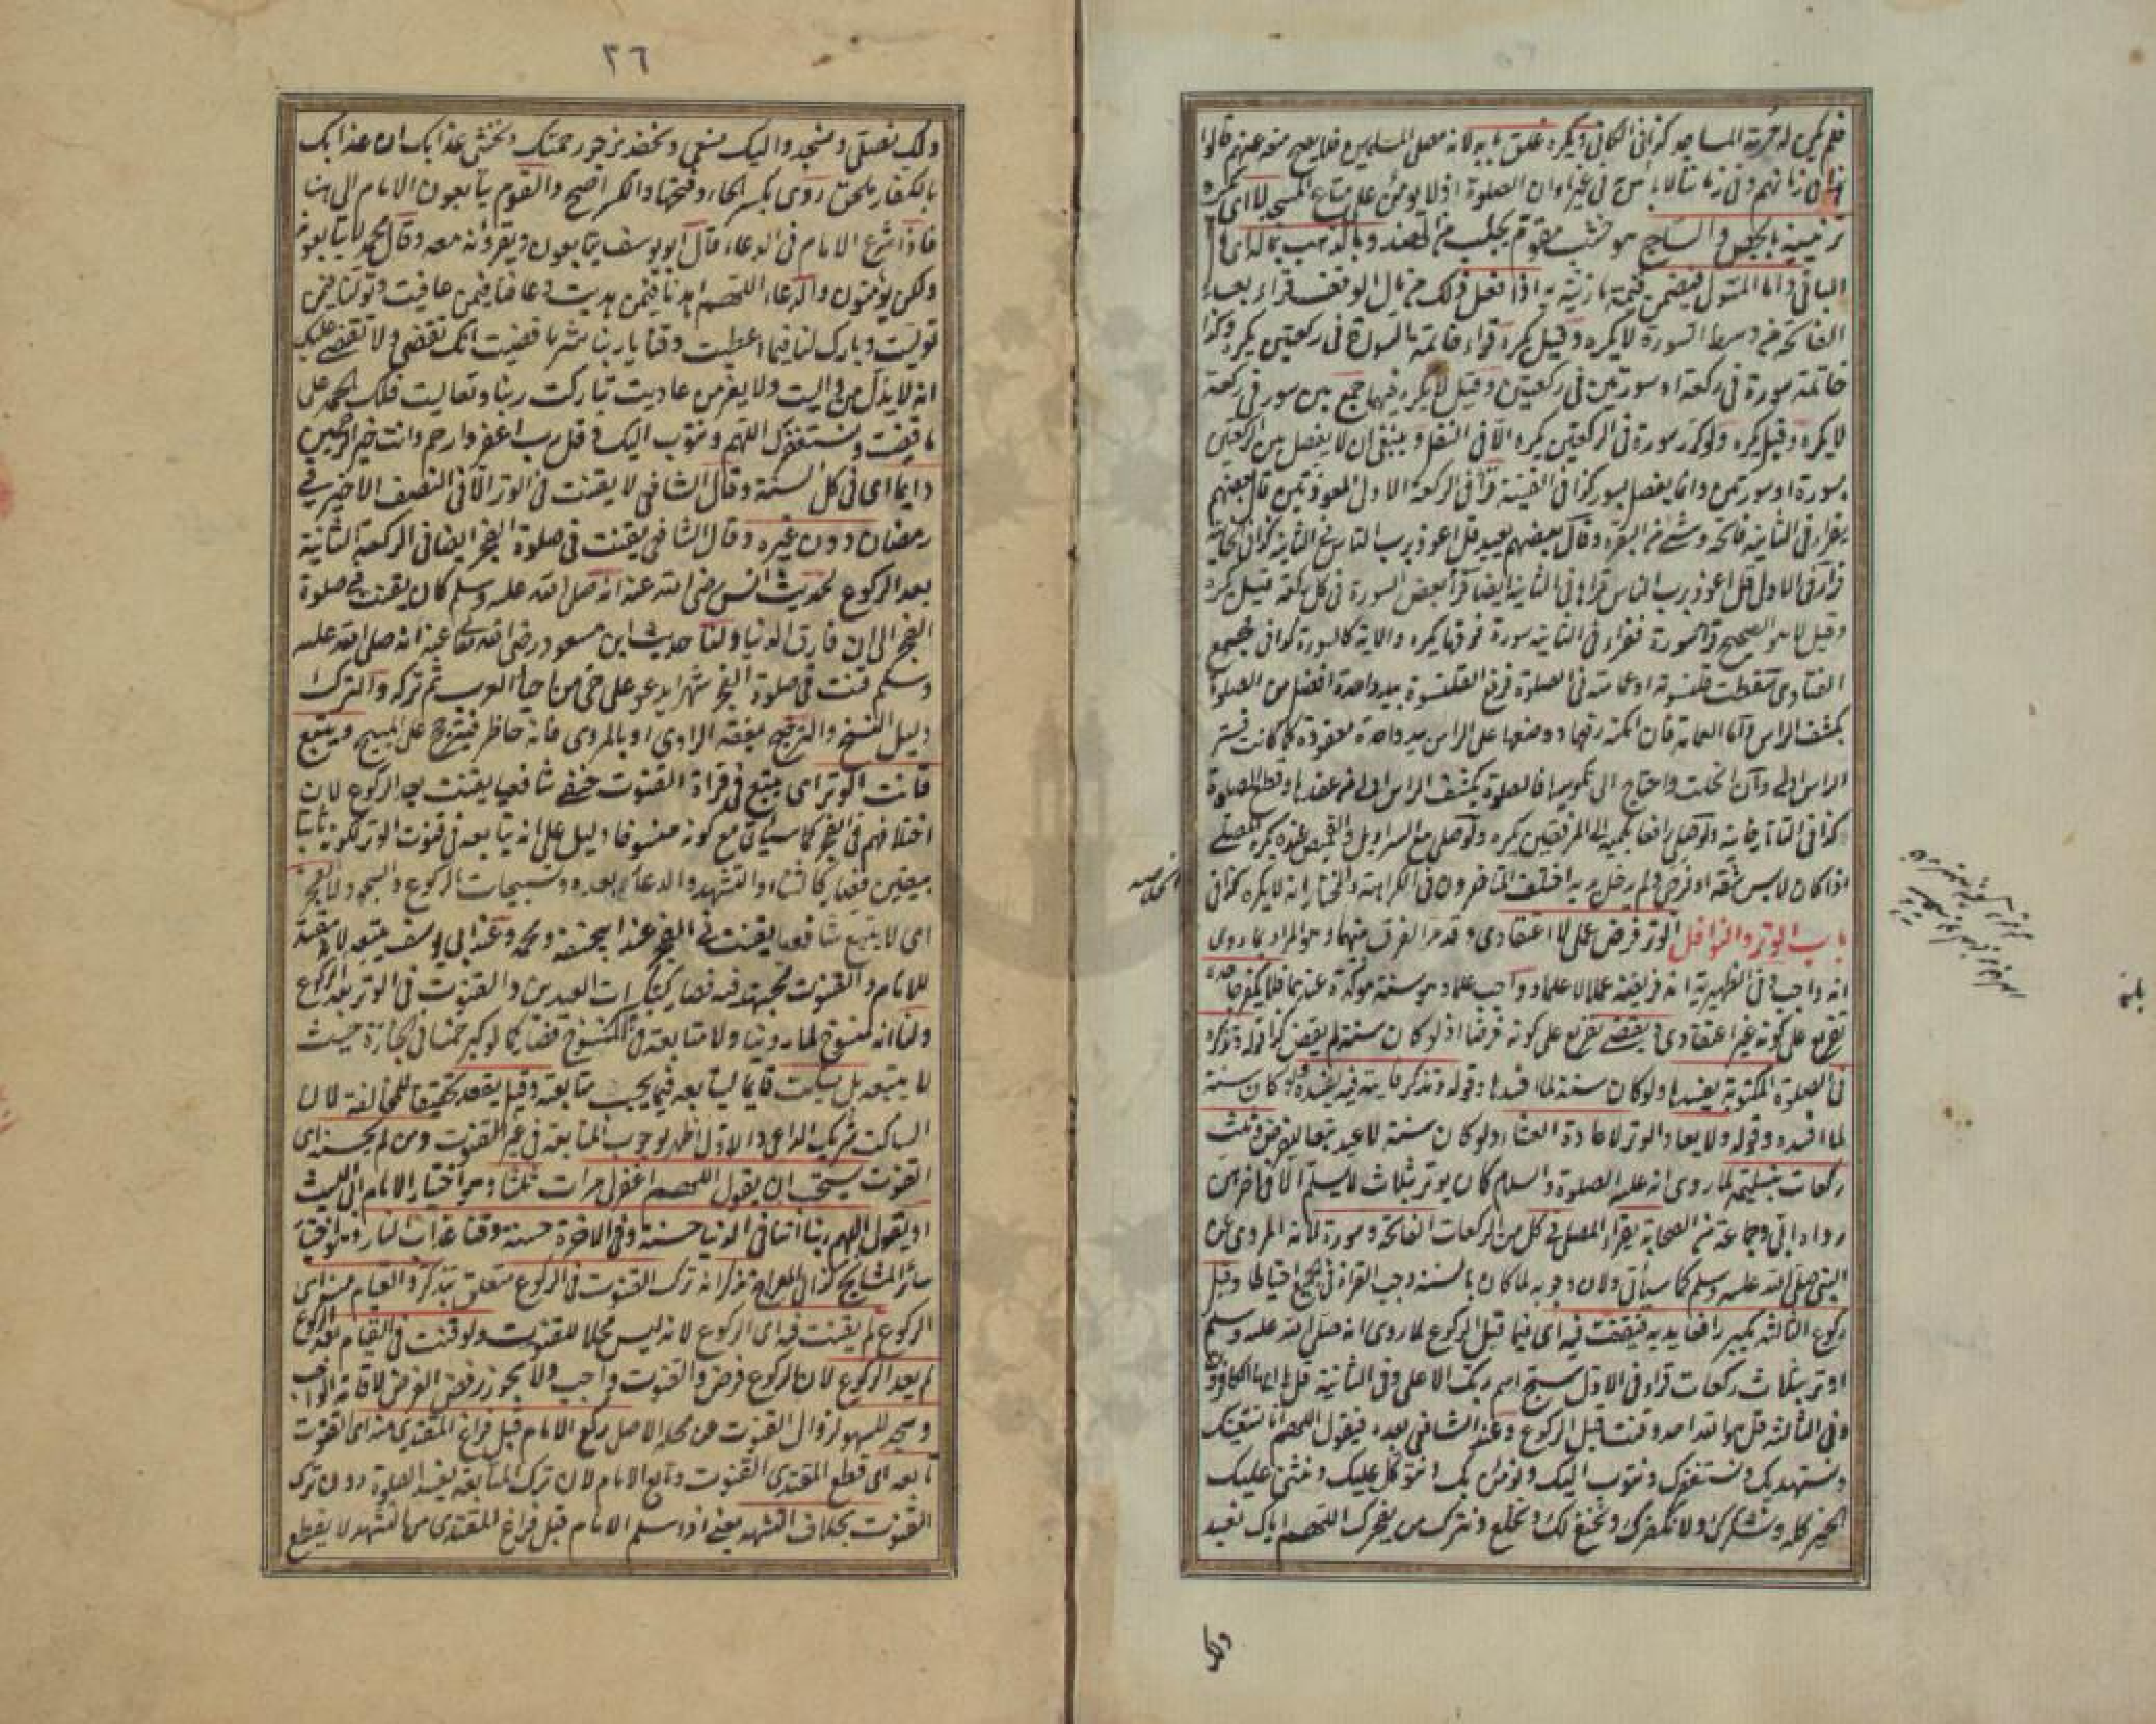 فلم يكن له حرمة المساجد كذا في الكافي ويكره غلق بابه لانه مصلى المسلمين فلا يصح منعه عنهم قالوا
هذا في زمانهم وفي زماننا لا باس في غير اوان الصلوة اذ لا يؤمن على متاع المسجد لا اى لا يكره
تزيينه بالجص والساج هو خشب مقوم يجلب من الهند وبالذهب بماله اى
البانى واما المتولى فيضمن قيمة ما زينته به اذا فعل ذلك من مال الوقف قراء بعد
الفاتحة من وسط السورة لا يكره وقيل يكره قراء خاتمة السورة في ركعتين يكره وكذا
خاتمة سورة في ركعة او سورتين في ركعتين وقيل لا يكره فيهما جمع بين سور في ركعة
لا يكره وقيل يكره ولو كرر سورة في الركعتين يكره الا في النفل وينبغي ان لا يفصل بين الركعتين
بسورة او سورتين وانما يفصل بسور كذا في القنية قرأ في الركعة الاولى المعوذتين قال بعضهم
يقراء في الثانية فاتحة وشئ من البقرة وقال بعضهم يعيد قل اعوذ برب الناس في الثانية كذا في
قرأ في الاولى قل اعوذ برب الناس قراها في الثانية ايضا قرأ بعض السورة في كل ركعة قيل يكره
وقيل لا هو الصحيح قرأ سورة فقراء في الثانية سورة فوقها يكره والاية كالسورة كذا في مجمع
الفتاوى سقطت قلنسوته او عمامته في الصلوة فرفع القلنسوة بيد واحدة افضل من الصلوة
بكشف الراس واما العمامة فان امكنه رفعها ووضعها على الراس بيد واحدة معقودة كما كانت فستر
الراس اولى وان انحلت واحتاج الى تكويرها فالصلوة بكشف الراس اولى من عقدها وقطع الصلوة
كذا في التاتارخانية ولو صلى رافعا كميه الى المرفقين يكره ولو صلى مع السراويل والقميص عنده يكره المصلى
اذا كان لابس شقة او فرجى ولم يدخل يديه اختلف المتاخرون في الكراهة والمختار انه لا يكره كذا في
الخلاصة
باب الوتر والنوافل الوتر فرض عملى لا اعتقادى وقد مر الفرق بينهما وهو المراد بما روى
انه واجب وفي الظهيرية انه فريضة عملا لا علما وواجب علما وهو سنة مؤكدة عندهما فلا يكفر جاحده
تفريع على كونه غير اعتقادى ويقضى تفريع على كونه فرضا اذ لو كان سنة لم يقض كذا قوله وتذكره
في الصلوة المكتوبة يفسدها ولو كان سنة لما افسدها وقوله وتذكر فايتة فيه يفسده ولو كان سنة
لما افسده وقوله ولا يعاد الوتر لاعادة العشاء ولو كان سنة لاعيد تبعا للفرض وثلث
ركعات بتسليمة لما روى انه عليه الصلوة والسلام كان يوتر بثلاث لا يسلم الا في اخرهن
رواه ابى وجماعة من الصحابة يقراء المصلى في كل من الركعات الفاتحة وسورة لانه المروى عن
النبي صلى الله عليه وسلم كما سيأتى ولان وجوبه لما كان بالسنة وجب القراة في الجميع احتياطا وقبل
ركوع الثالثة يكبر رافعا يديه فيقنت فيه اى فيما قبل الركوع لما روى انه صلى الله عليه وسلم
اوتر بثلاث ركعات قراء في الاولى سبح اسم ربك الاعلى وفي الثانية قل يا ايها الكافرون
وفي الثالثة قل هو الله احد وقنت قبل الركوع وعند الشافعى بعده فيقول اللهم انا نستعينك
ونستهديك ونستغفرك ونتوب اليك ونؤمن بك ونتوكل عليك ونثنى عليك
الخير كله ونشكرك ولا نكفرك ونخنع لك ونخلع ونترك من يفجرك اللهم اياك نعبد
ولك
٢٦
ولك نصلى ونسجد واليك نسعى ونحفد نرجو رحمتك ونخشى عذابك ان عذابك
بالكفار ملحق روى بكسر الحاء وفتحها والكسر افصح والقوم يتابعون الامام الى هنا
فاذا شرع الامام في الدعاء قال ابو يوسف يتابعونه ويقرؤنه معه وقال محمد لا يتابعونه
ولكن يؤمنون والدعاء اللهم اهدنا فيمن هديت وعافنا فيمن عافيت وتولنا فيمن
توليت وبارك لنا فيما اعطيت وقنا يا ربنا شر ما قضيت انك تقضى ولا يقضى عليك
انه لا يذل من واليت ولا يعز من عاديت تباركت ربنا وتعاليت فلك الحمد على
ما قضيت ونستغفرك اللهم ونتوب اليك وقل رب اغفر وارحم وانت خير الراحمين
دايما اى في كل السنة وقال الشافعى لا يقنت في الوتر الا في النصف الاخير في
رمضان دون غيره وقال الشافعى يقنت في صلوة الفجر ايضا في الركعة الثانية
بعد الركوع لحديث انس رضى الله عنه انه صلى الله عليه وسلم كان يقنت في صلوة
الفجر الى ان فارق الدنيا ولنا حديث ابن مسعود رضى الله تعالى عنه انه صلى الله عليه
وسلم قنت في صلوة الفجر شهرا يدعو على حى من احياء العرب ثم تركه والترك
دليل النسخ والترجيح بفقه الراوى او بالمروى فانه حاظر فيترجح على المبيح ويتبع
قانت الوتر اى يتبع في قراة القنوت حنفى شافعيا يقنت بعد الركوع لان
اختلافهم في الفجر كما سيأتى مع كونه منسوخا دليل على انه يتابعه في قنوت الوتر لكونه ثابتا
بيقين فصار كالثناء والتشهد والدعاء بعده وتسبيحات الركوع والسجود لا الفجر
اى لا يتبع شافعيا يقنت في الفجر عند ابيحنيفة ومحمد وعند ابى يوسف يتبعه لانه تبع
للامام والقنوت مجتهد فيه فصار كتكبيرات العيدين والقنوت في الوتر بعد الركوع
ولنا انه منسوخ لما روينا ولا متابعة في المنسوخ فصار كما لو كبر خمسا في الجنازة حيث
لا يتبعه بل يسكت قايما ليتابعه فيما يجب متابعته وقيل يقعد تحقيقا للمخالفة لان
الساكت شريك الداعى والاول اظهر لوجوب المتابعة في غير القنوت ومن لم يحسن اى
القنوت يستحب ان يقول اللهم اغفر لى مرات ثلثا وهو اختيار الامام ابى الليث
او يقول اللهم ربنا آتنا في الدنيا حسنة وفي الاخرة حسنة وقنا عذاب النار وهو اختيار
سائر المشايخ كذا في المعراج تذكر انه ترك القنوت في الركوع متعلق بتذكر او القيام منه اى
الركوع لم يقنت فيه اى الركوع لانه ليس محلا للقنوت ولو قنت في القيام بعد الركوع
لم يعد الركوع لان الركوع فرض والقنوت واجب ولا يجوز رفض الفرض لاقامة الواجب
وسجد للسهو لزوال القنوت عن محله الاصل ركع الامام قبل فراغ المقتدى منه اى القنوت
تابعه اى قطع المقتدى القنوت وتابع الامام لان ترك المتابعة يفسد الصلوة دون ترك
القنوت بخلاف التشهد يعنى اذا سلم الامام قبل فراغ المقتدى من التشهد لا يقطع